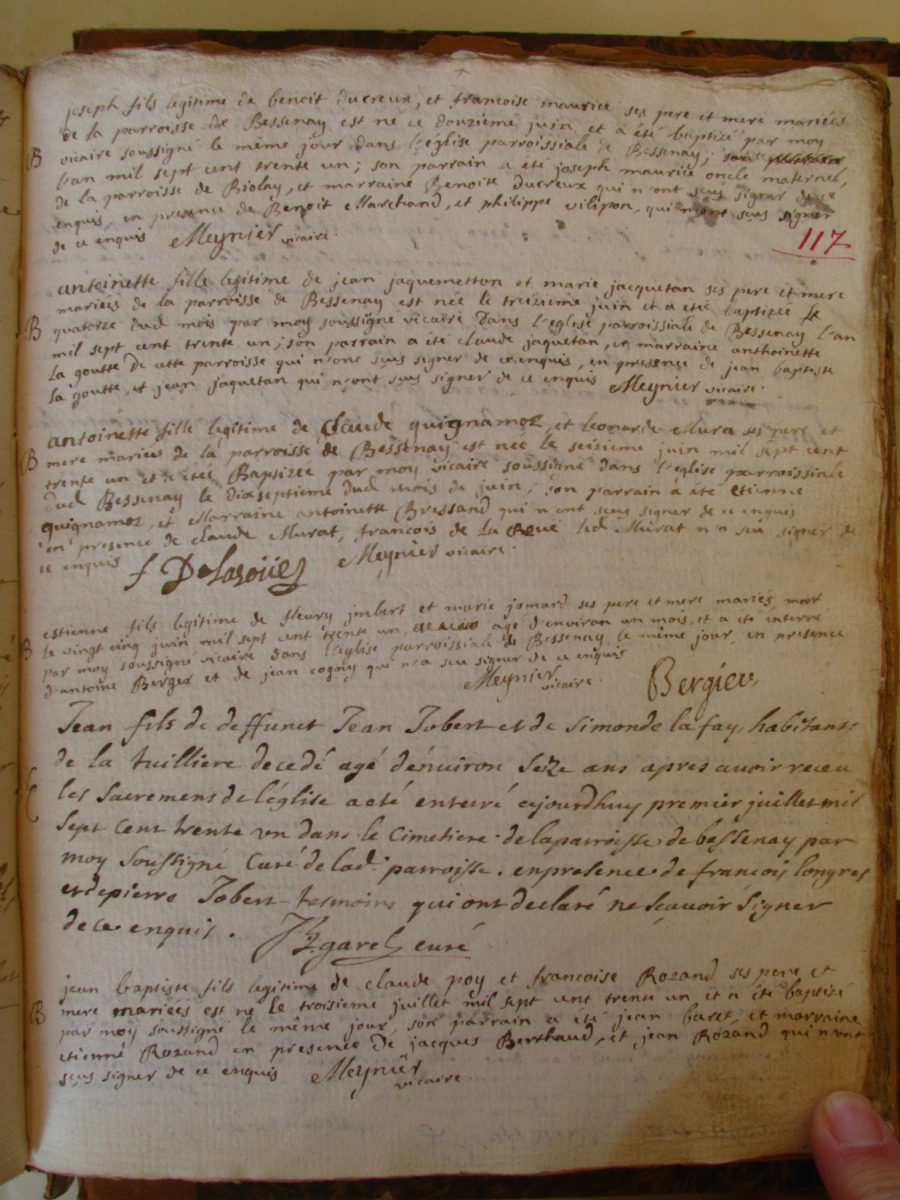 joseph fils legitime de benoit ducreux, et francoise maurice ses pere et mere mariées
de la parroisse de Bessenay est ne ce douzieme juin et a été baptizé par moy
B vicaire soussigné le même jour dans l'église parroissiale de Bessenay;
l'an mil sept cent trente un; son parrain a été joseph maurice oncle maternel,
de la parroisse de Biolay, et marraine Benoite ducreux qui n'ont seus signer de ce
enquis, en presence de Benoit Marchand, et philippe vilipon, qui n'ont seus signer
de ce enquis Meynier vicaire.
117
antoinette fille legitime de jean jaquemetton et marie jacquetan ses pere et mere
mariées de la parroisse de Bessenay est née le treizieme juin et a eté baptizée le
B quatorze dud mois par moy soussigné vicaire dans l'église parroissiale de Bessenay l'an
mil sept cent trente un; son parrain a été claude jaquetan, et marraine anthoinette
la goutte de cette parroisse qui n'ons seus signer de ce enquis, en presence de jean baptiste
la goutte, et jean jaquetan qui n'ont seus signer de ce enquis Meynier vicaire.
antoinette fille legitime de Claude quignamoz, et leonarde Murat ses pere et
B mere mariées de la parroisse de Bessenay est née le seizieme juin mil sept cent
trente un et a étée Baptizée par moy vicaire soussigné dans l'eglise parroissiale
dud Bessenay le dixseptieme dud mois de juin; son parrain a été etienne
quignamoz, et Marraine antoinette Bressand qui n'ont seus signer de ce enquis
en presence de claude Murat, francois de la Roué led Murat n'a seu signer de
ce enquis f Delaroüe Meynier vicaire.
estienne fils legitime de fleury jmbert et marie jomard ses pere et mere mariés, mort
le vingt cinq juin mil sept cent trente un, agé d'environ un mois, et a été enterré
B par moy soussigné vicaire dans l'église parroissiale de Bessenay le même jour, en presence
d'antoine Berger et de jean cognay qui n'a seu signer de ce enquis
Meynier vicaire. Bergier
Jean fils de deffunct Jean Jobert et de Simonde la fay, habitants
de la tuilliere decedé agé d'énuiron Seize ans apres auoir receu
les Sacremens de l'église a eté enterré aujourdhuy premier juillet mil
Sept Cent trente vn dans le Cimetiere de la parroisse de bessenay par
moy Soussigné Curé de lad parroisse. en presence de francois longres
et de pierre Jobert tesmoins qui ont declaré ne Scauoir Signer
de ce enquis. garel curé
jean baptiste fils legitime de claude poy et francoise Rozand ses pere et
B mere mariéés est né le troisieme juillet mil sept cent trente un et a été baptizé
par moy soussigné le même jour, son parrain a été jean baret, et marraine
etienné Rozand en presence de jacques Berthaud, et jean Rozand qui n'ont
seus signer de ce enquis Meynier
vicaire.